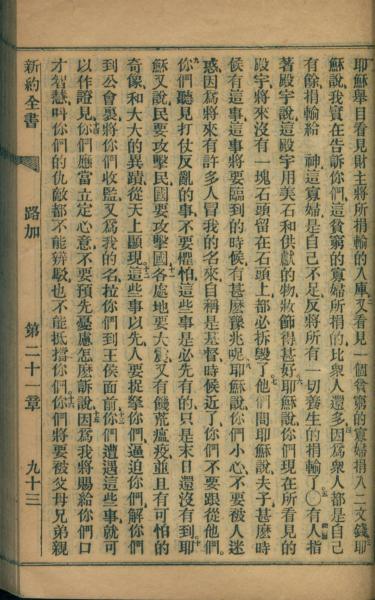 耶穌舉目看見財主將所捐輸的入庫又看見一個貧窮的寡婦捐入二文錢耶
穌說我實在告訴你們這貧窮的寡婦所捐的比衆人還多因爲衆人都是自己
有餘捐輸給 神這寡婦是自己不足反將所有一切養生的捐輸了○有人指
著殿宇說這殿宇用美石和供獻的物妝飾得甚好耶穌說你們現在所看見的
殿宇將來沒有一塊石頭留在石頭上都必拆毀了他們問耶穌說夫子甚麽時
候有這事這事將要臨到的時候有甚麽豫兆呢耶穌說你們小心不要被人迷
惑因爲將來有許多人冒我的名來自稱是基督時候近了你們不要跟從他們
你們聽見打仗反亂的事不要懼怕這些事是必先有的只是末日還沒有到耶
穌又說民要攻擊民國要攻擊國各處地要大震又有饑荒瘟疫並且有可怕的
奇像和大大的異蹟從天上顯現這些事以先人要捉拏你們逼迫你們解你們
到公會裏將你們收監又爲我的名拉你們到王侯面前你們遭遇這些事就可
以作證見你們應當立定心意不要預先憂慮怎麽訴說因爲我將賜給你們口
才智慧叫你們的仇敵都不能辨駁也不能抵擋你們你們將要被父母兄弟親
新約全書 路加 第二十一章 九十三